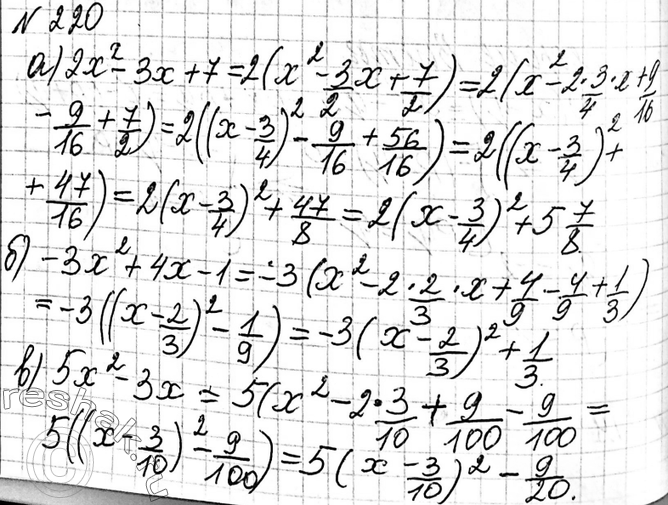 № 220
а) 2x² - 3x + 7 = 2(x² - 3/2 x + 7/2) = 2(x² - 2·3/4·x + 9/16
- 9/16 + 7/2) = 2((x - 3/4)² - 9/16 + 56/16) = 2((x - 3/4)² +
+ 47/16) = 2(x - 3/4)² + 47/8 = 2(x - 3/4)² + 5 7/8.
б) -3x² + 4x - 1 = -3(x² - 2·2/3·x + 4/9 - 4/9 + 1/3)
= -3((x - 2/3)² - 1/9) = -3(x - 2/3)² + 1/3.
в) 5x² - 3x = 5(x² - 2·3/10 + 9/100 - 9/100 =
5((x - 3/10)² - 9/100) = 5(x - 3/10)² - 9/20.
reshak.ru